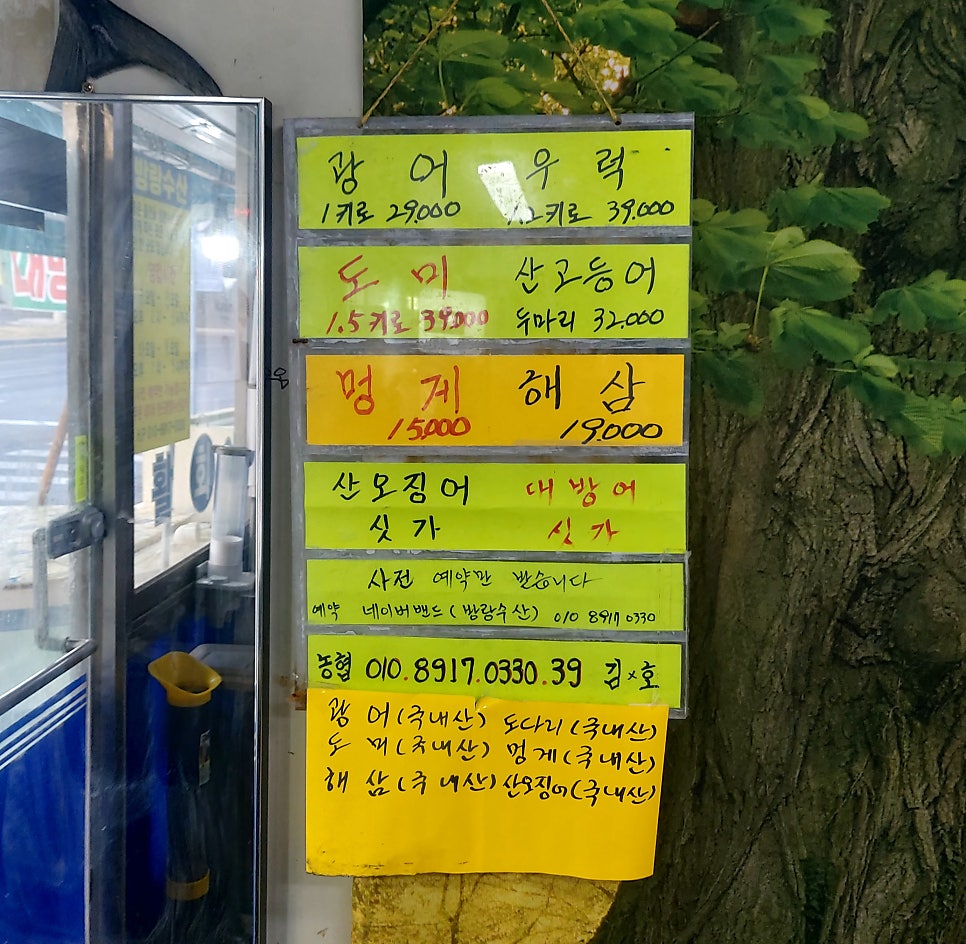 광어 우럭
1키로 29.000 1.2키로 39.000
도미 산고등어
1.5키로 39.000 두마리 32.000
멍게 해삼
15.000 19.000
산오징어 대방어
싯가 싯가
사전 예약만 받습니다
예약 네이버밴드(방랑수산) 010 8917 0330
농협 010.8917.0330.39 김×호
광어(국내산) 도다리(국내산)
도미(국내산) 멍게(국내산)
해삼(국내산) 산오징어(국내산)